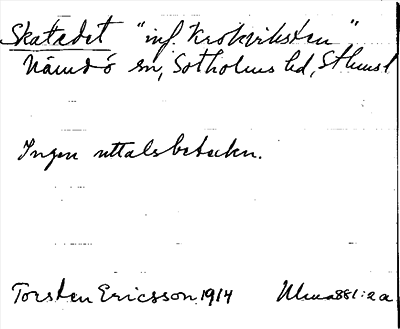 Skatudet "inf. Krokviksten"
Nämdö sn, Sotholms hd, Sthmsl
Ingen uttalsbeteckn.
Torsten Ericsson 1914 Ulma 881:2a